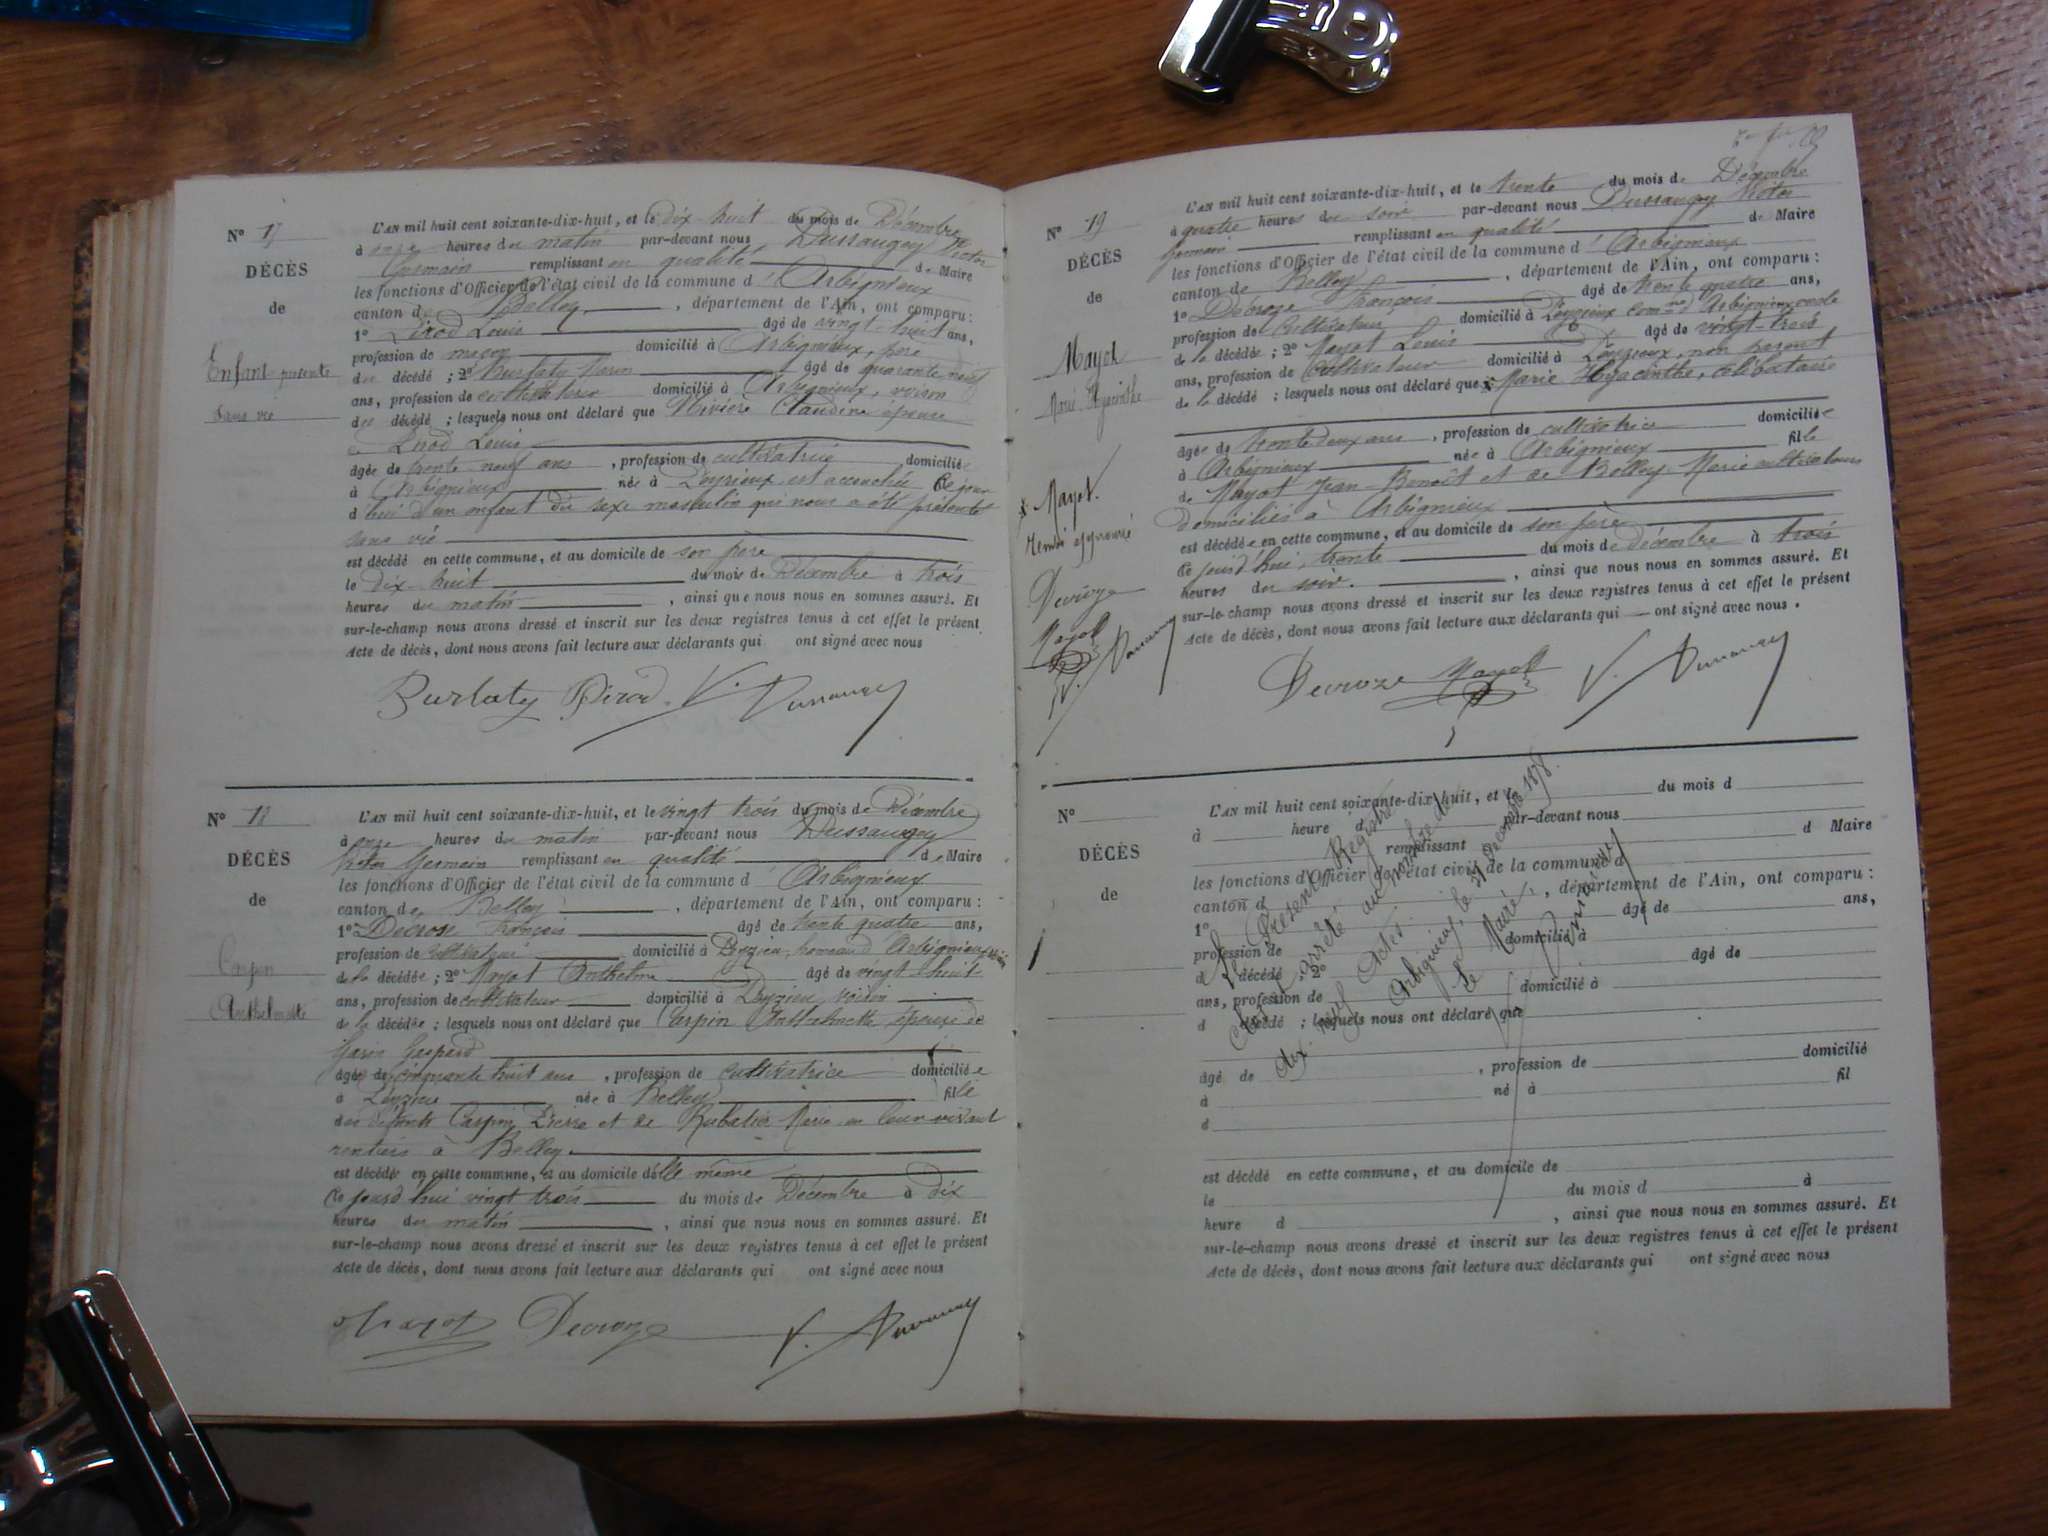 N° 17
DÉCÈS
de
Enfant présenté
Sans vie
L'AN mil huit cent soixante-dix-huit, et le dix-huit du mois de Décembre
à onze heures du matin par-devant nous Dussaugey Victor
Germain remplissant en qualité de Maire
les fonctions d'Officier de l'état civil de la commune d'Arbignieux
canton de Belley, département de l'Ain, ont comparu :
1° Pirod Louis âgé de vingt-huit ans,
profession de maçon domicilié à Arbignieux, père
du décédé ; 2° Burlaty âgé de quarante-neuf
ans, profession de cultivateur domicilié à Arbignieux, voisin
du décédé ; lesquels nous ont déclaré que Rivière Claudine épouse
de Pirod Louis
âgée de trente-neuf ans, profession de cultivatrice domiciliée
à Arbignieux née à Peyzieux est accouchée ce jour
d'hui d'un enfant du sexe masculin qui nous a été présenté
sans vie
est décédé en cette commune, et au domicile de son père
le dix-huit du mois de Décembre à trois
heures du matin, ainsi que nous nous en sommes assuré. Et
sur-le-champ nous avons dressé et inscrit sur les deux registres tenus à cet effet le présent
Acte de décès, dont nous avons fait lecture aux déclarants qui ont signé avec nous
Burlaty Pirod V. Dussaugey
N° 18
DÉCÈS
de
Carpin
Anthelmette
L'AN mil huit cent soixante-dix-huit, et le vingt trois du mois de Décembre
à onze heures du matin par-devant nous Dussaugey
Victor Germain remplissant en qualité de Maire
les fonctions d'Officier de l'état civil de la commune d'Arbignieux
canton de Belley, département de l'Ain, ont comparu :
1° Décrose François âgé de trente quatre ans,
profession de cultivateur domicilié à Peyzieu, hameau d'Arbignieux voisin
de la décédée ; 2° Mayot Anthelme âgé de vingt-huit
ans, profession de cultivateur domicilié à Peyzieu, voisin
de la décédée ; lesquels nous ont déclaré que Carpin Anthelmette épouse de
Gaspard
âgée de cinquante huit ans, profession de cultivatrice domiciliée
à Peyzieu née à Belley fille
des défunts Carpin Pierre et de Rubatier Marie en leur vivant
rentiers à Belley
est décédée en cette commune, et au domicile d'elle même
ce jourd'hui vingt trois du mois de Décembre à dix
heures du matin, ainsi que nous nous en sommes assuré. Et
sur-le-champ nous avons dressé et inscrit sur les deux registres tenus à cet effet le présent
Acte de décès, dont nous avons fait lecture aux déclarants qui ont signé avec nous
Mayot Decroze V. Dussaugey
N° 19
DÉCÈS
de
Mayot
Marie Hyacinthe
x Mayot.
renvoi approuvé
Decroze
Mayot
V. Dussaugey
L'AN mil huit cent soixante-dix-huit, et le trente du mois de Décembre
à quatre heures du soir par-devant nous Dussaugey Victor
Germain remplissant en qualité de Maire
les fonctions d'Officier de l'état civil de la commune d'Arbignieux
canton de Belley, département de l'Ain, ont comparu :
1° Décroze François âgé de trente quatre ans,
profession de cultivateur domicilié à Peyzieux com.ne d'Arbignieux oncle
de la décédée ; 2° Mayot Louis âgé de vingt-trois
ans, profession de cultivateur domicilié à Peyzieux, non parent
de la décédé ; lesquels nous ont déclaré que x Marie Hyacinthe, célibataire
âgée de trente deux ans, profession de cultivatrice domiciliée
à Arbignieux née à Arbignieux fille
de Mayot Jean-Benoît et de Belley Marie cultivateurs
domiciliés à Arbignieux
est décédée en cette commune, et au domicile de son père
ce jourd'hui, trente du mois de décembre à trois
heures du soir, ainsi que nous nous en sommes assuré. Et
sur-le-champ nous avons dressé et inscrit sur les deux registres tenus à cet effet le présent
Acte de décès, dont nous avons fait lecture aux déclarants qui ont signé avec nous.
Decroze Mayot V. Dussaugey
N°
DÉCÈS
de
L'AN mil huit cent soixante-dix-huit, et le du mois d
à heure d par-devant nous
remplissant d Maire
les fonctions d'Officier de l'état civil de la commune d
canton d, département de l'Ain, ont comparu :
1° âgé de ans,
profession de domicilié à
d décédé 2° âgé de
ans, profession de domicilié à
d décédé ; lesquels nous ont déclaré que
âgé de, profession de domicilié
à né à fil
d
est décédé en cette commune, et au domicile de
le du mois d à
heure d, ainsi que nous nous en sommes assuré. Et
sur-le-champ nous avons dressé et inscrit sur les deux registres tenus à cet effet le présent
Acte de décès, dont nous avons fait lecture aux déclarants qui ont signé avec nous
Le Présent Registre
clos et arrêté au nombre de
dix-neuf actes.
Arbignieux, le 31 décembre 1878.
Le Maire,
V. Dussaugey